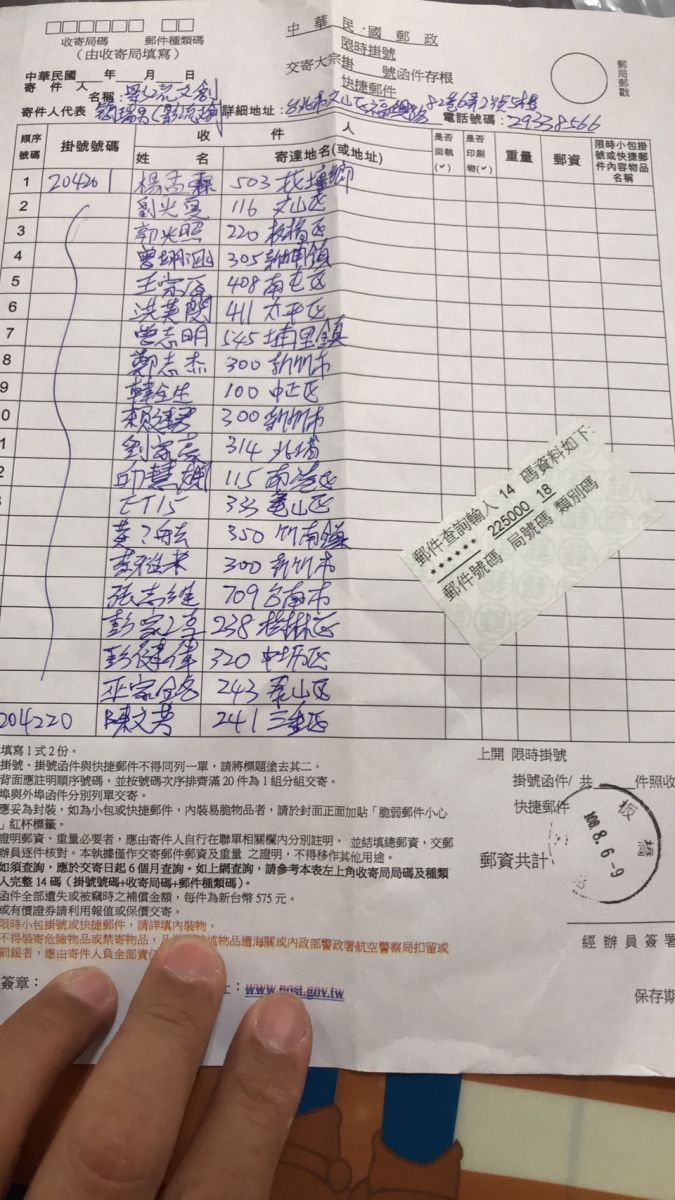 中華民國郵政
限時掛號
交寄大宗掛 號函件存根
快捷郵件
收寄局碼 郵件種類碼
(由收寄局填寫)
中華民國 年 月 日
寄件人
名稱:
寄件人代表 詳細地址:台北市文山區 82巷6弄2號5樓
電話號碼:29338566
郵局郵戳
順序號碼 掛號號碼 收件人 是否回執(✓) 是否印刷物(✓) 重量 郵資 限時小包掛號或快捷郵件內容物品名稱
姓名 寄達地名(或地址)
1 204201 503
2 劉光 116 文山區
3 郭光照 220 板橋區
4 305 新埔鎮
5 408 南屯區
6 411 太平區
7 曾志明 545 埔里鎮
8 鄭志杰 300 新竹市
9 韓全生 100 中正區
0 300 新竹市
1 314 北埔
2 115 南港區
ET15 333 龜山區
350 竹南鎮
300 新竹市
張志維 709 台南市
238 樹林區
彭健偉 320 中坜區
243 泰山區
204220 陳文英 241 三重區
郵件查詢輸入 14 碼資料如下:
****** 225000 18
郵件號碼 局號碼 類別碼
填寫1式2份。
掛號、掛號函件與快捷郵件不得同列一單,請將標題塗去其二。
背面應註明順序號碼,並按號碼次序排齊滿20件為1組分組交寄。
埠與外埠函件分別列單交寄。
應妥為封裝,如為小包或快捷郵件,內裝易脆物品者,請於封面正面加貼「脆弱郵件小心
」紅杯標籤。
證明郵資、重量必要者,應由寄件人自行在聯單相關欄內分別註明,並結填總郵資,交郵
辦員逐件核對。本執據僅作交寄郵件郵資及重量之證明,不得移作其他用途。
如須查詢,應於交寄日起6個月查詢。如上網查詢,請參考本表左上角收寄局局碼及種類
入完整14碼(掛號號碼+收寄局碼+郵件種類碼)。
函件全部遺失或被竊時之補償金額,每件為新台幣575元。
或有價證券請利用報值或保價交寄。
限時小包掛號或快捷郵件,請詳填內裝物。
不得裝寄危險物品或禁寄物品,物品遭海關或內政部警政署航空警察局扣留或
罰鍰者,應由寄件人負全部責
簽章: :www.post.gov.tw
上開 限時掛號
掛號函件/ 共 件照收
快捷郵件
郵資共計
板橋
108.8.6-9
經辦員簽署
保存期